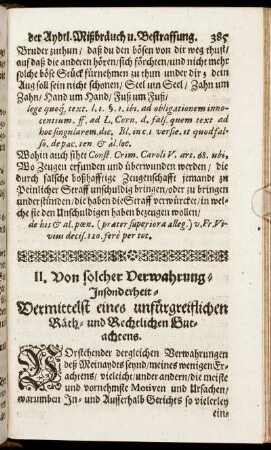 der Aydtl. Mißbräuch u. Bestraffung. 385
Bruder zuthun/ daß du den bösen von dir weg thust/
auf daß die anderen hören/sich förchten/und nicht mehr
solche böse Stück fürnehmen zu thun under dir; dein
Aug soll sein nicht schonen/ Seel um Seel/ Zahn um
Zahn/ Hand um Hand/ Fuß um Fuß/
lege quoq. text. l. 1. §. 1. ibi. ad obligationem inno-
centium. ff. ad L. Corn. d. fals. quem text ad
hoc singularem dic. Bl. in c. 1 versic. it quod fal-
so. de pac. ten & al. loc.
Wohin auch sihet Const. Crim. Caroli V. art. 68. ubi,
Wo Zeugen erfunden und überwunden werden/ die
durch falsche boßhafftige Zeugenschafft jemandz zu
Peinlicher Straff unschuldig bringen/oder zu bringen
understünden/ die haben die Straff verwürcket/ in wel-
che sie den Unschuldigen haben bezeugen wollen/
de his & al. pœn. (præter superiora alleg.) v. Fr. Vi-
vius decis. 120. ferè per tot.
II. Von solcher Verwahrung/
Insonderheit/
Vermittelst eines unfürgreiflichen
Räth- und Rechtlichen Gut-
achtens.
VOrstehender dergleichen Verwahrungen
deß Meinaydts seynd/meines wenigen Er-
achtens/ vielleicht/ under andern/ die meiste
und vornehmste Motiven und Ursachen/
warumben In- und Ausserhalb Gerichts so vielerley
ein-